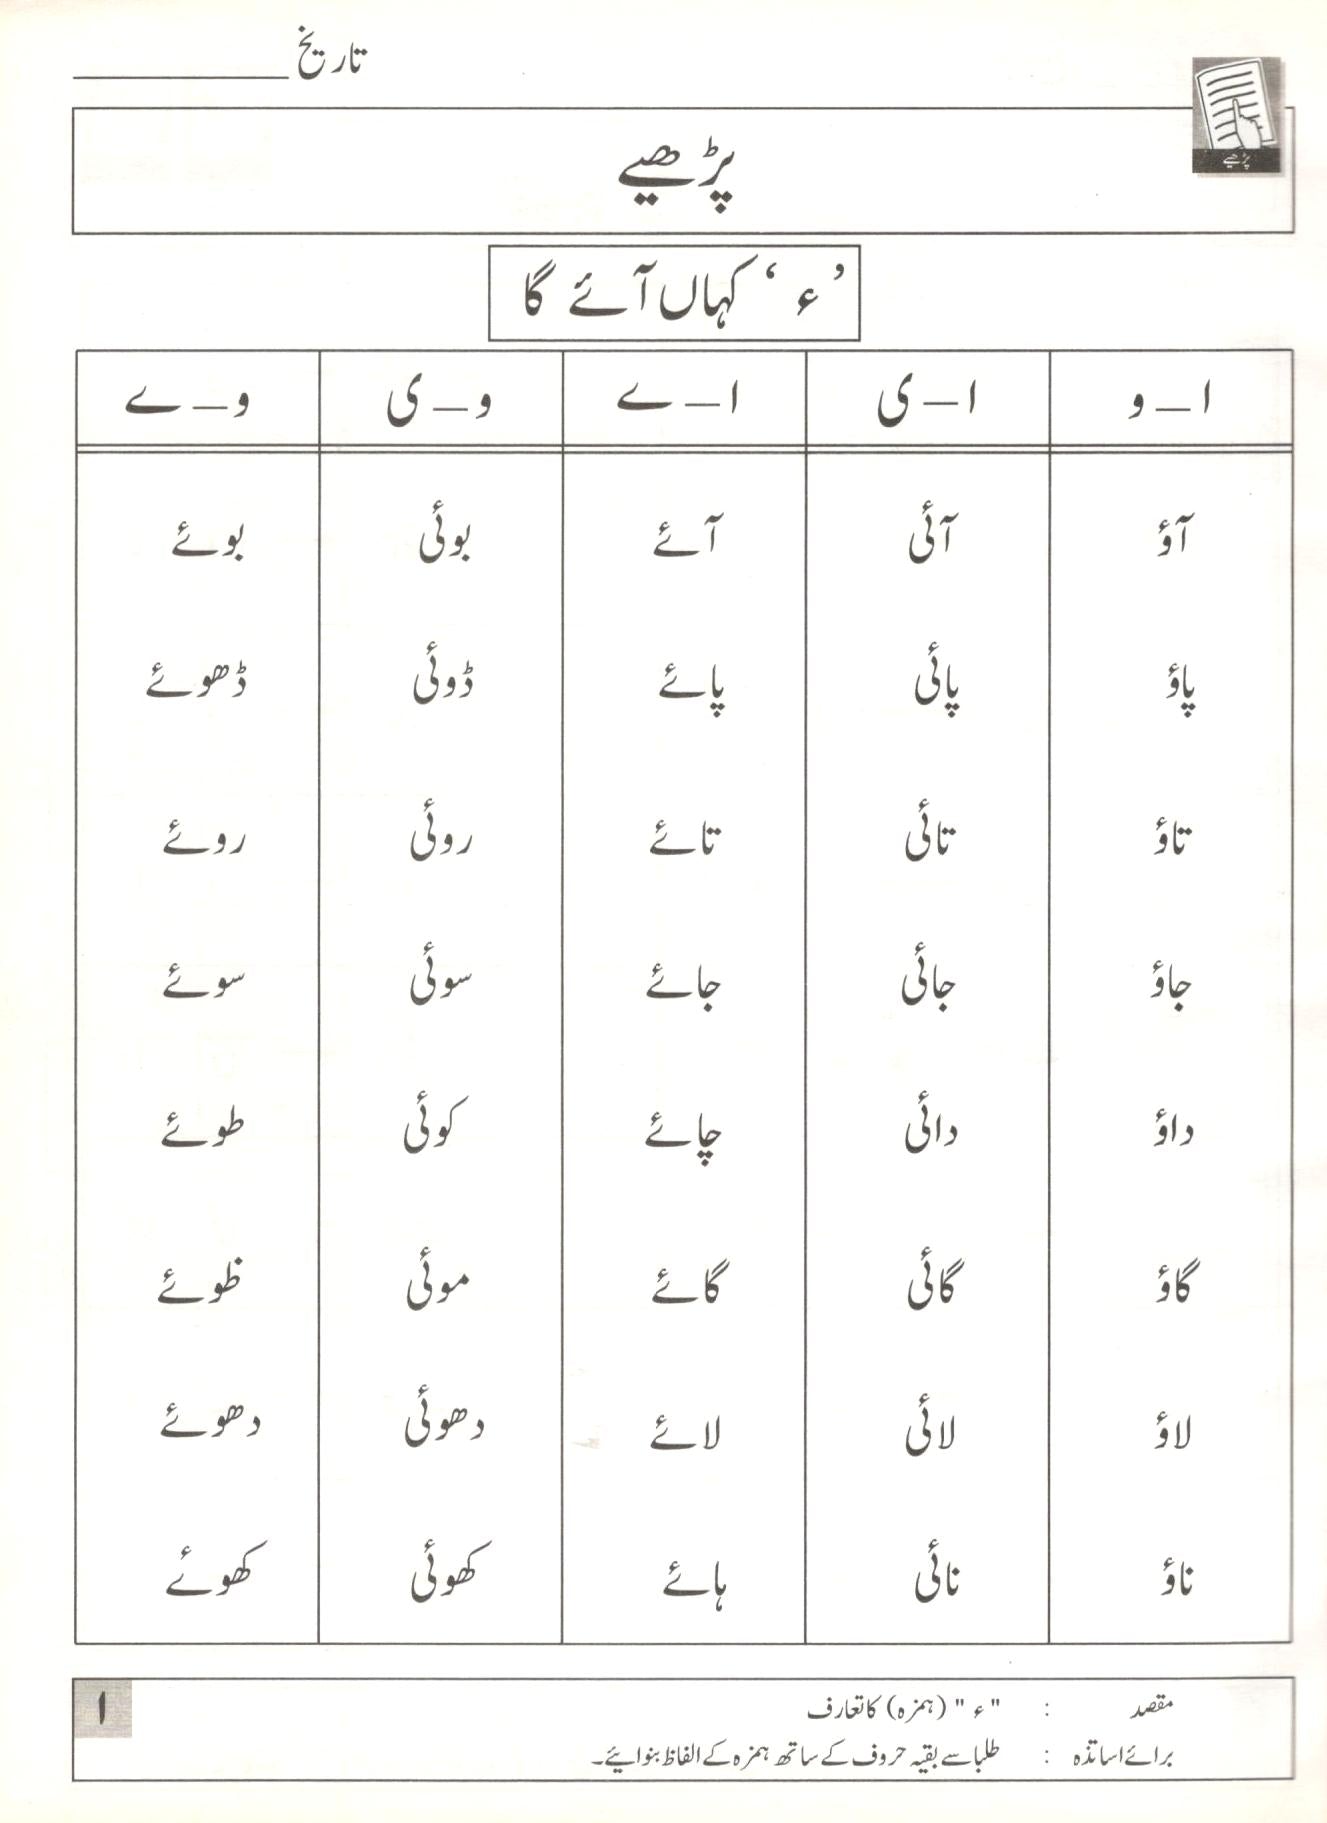 تاریخ
پڑھیے
پڑھیے
’ء‘ کہاں آئے گا
ا – و	ا – ی	ا – ے	و – ی	و – ے
آؤ	آئی	آئے	بوئی	بوئے
پاؤ	پائی	پائے	ڈوئی	ڈھوئے
تاؤ	تائی	تائے	روئی	روئے
جاؤ	جائی	جائے	سوئی	سوئے
داؤ	دائی	چائے	کوئی	طوئے
گاؤ	گائی	گائے	موئی	ظوئے
لاؤ	لائی	لائے	دھوئی	دھوئے
ناؤ	نائی	ہائے	کھوئی	کھوئے
مقصد : "ء" (ہمزہ) کا تعارف
برائے اساتذہ : طلبا سے بقیہ حروف کے ساتھ ہمزہ کے الفاظ بنوائیے۔
۱